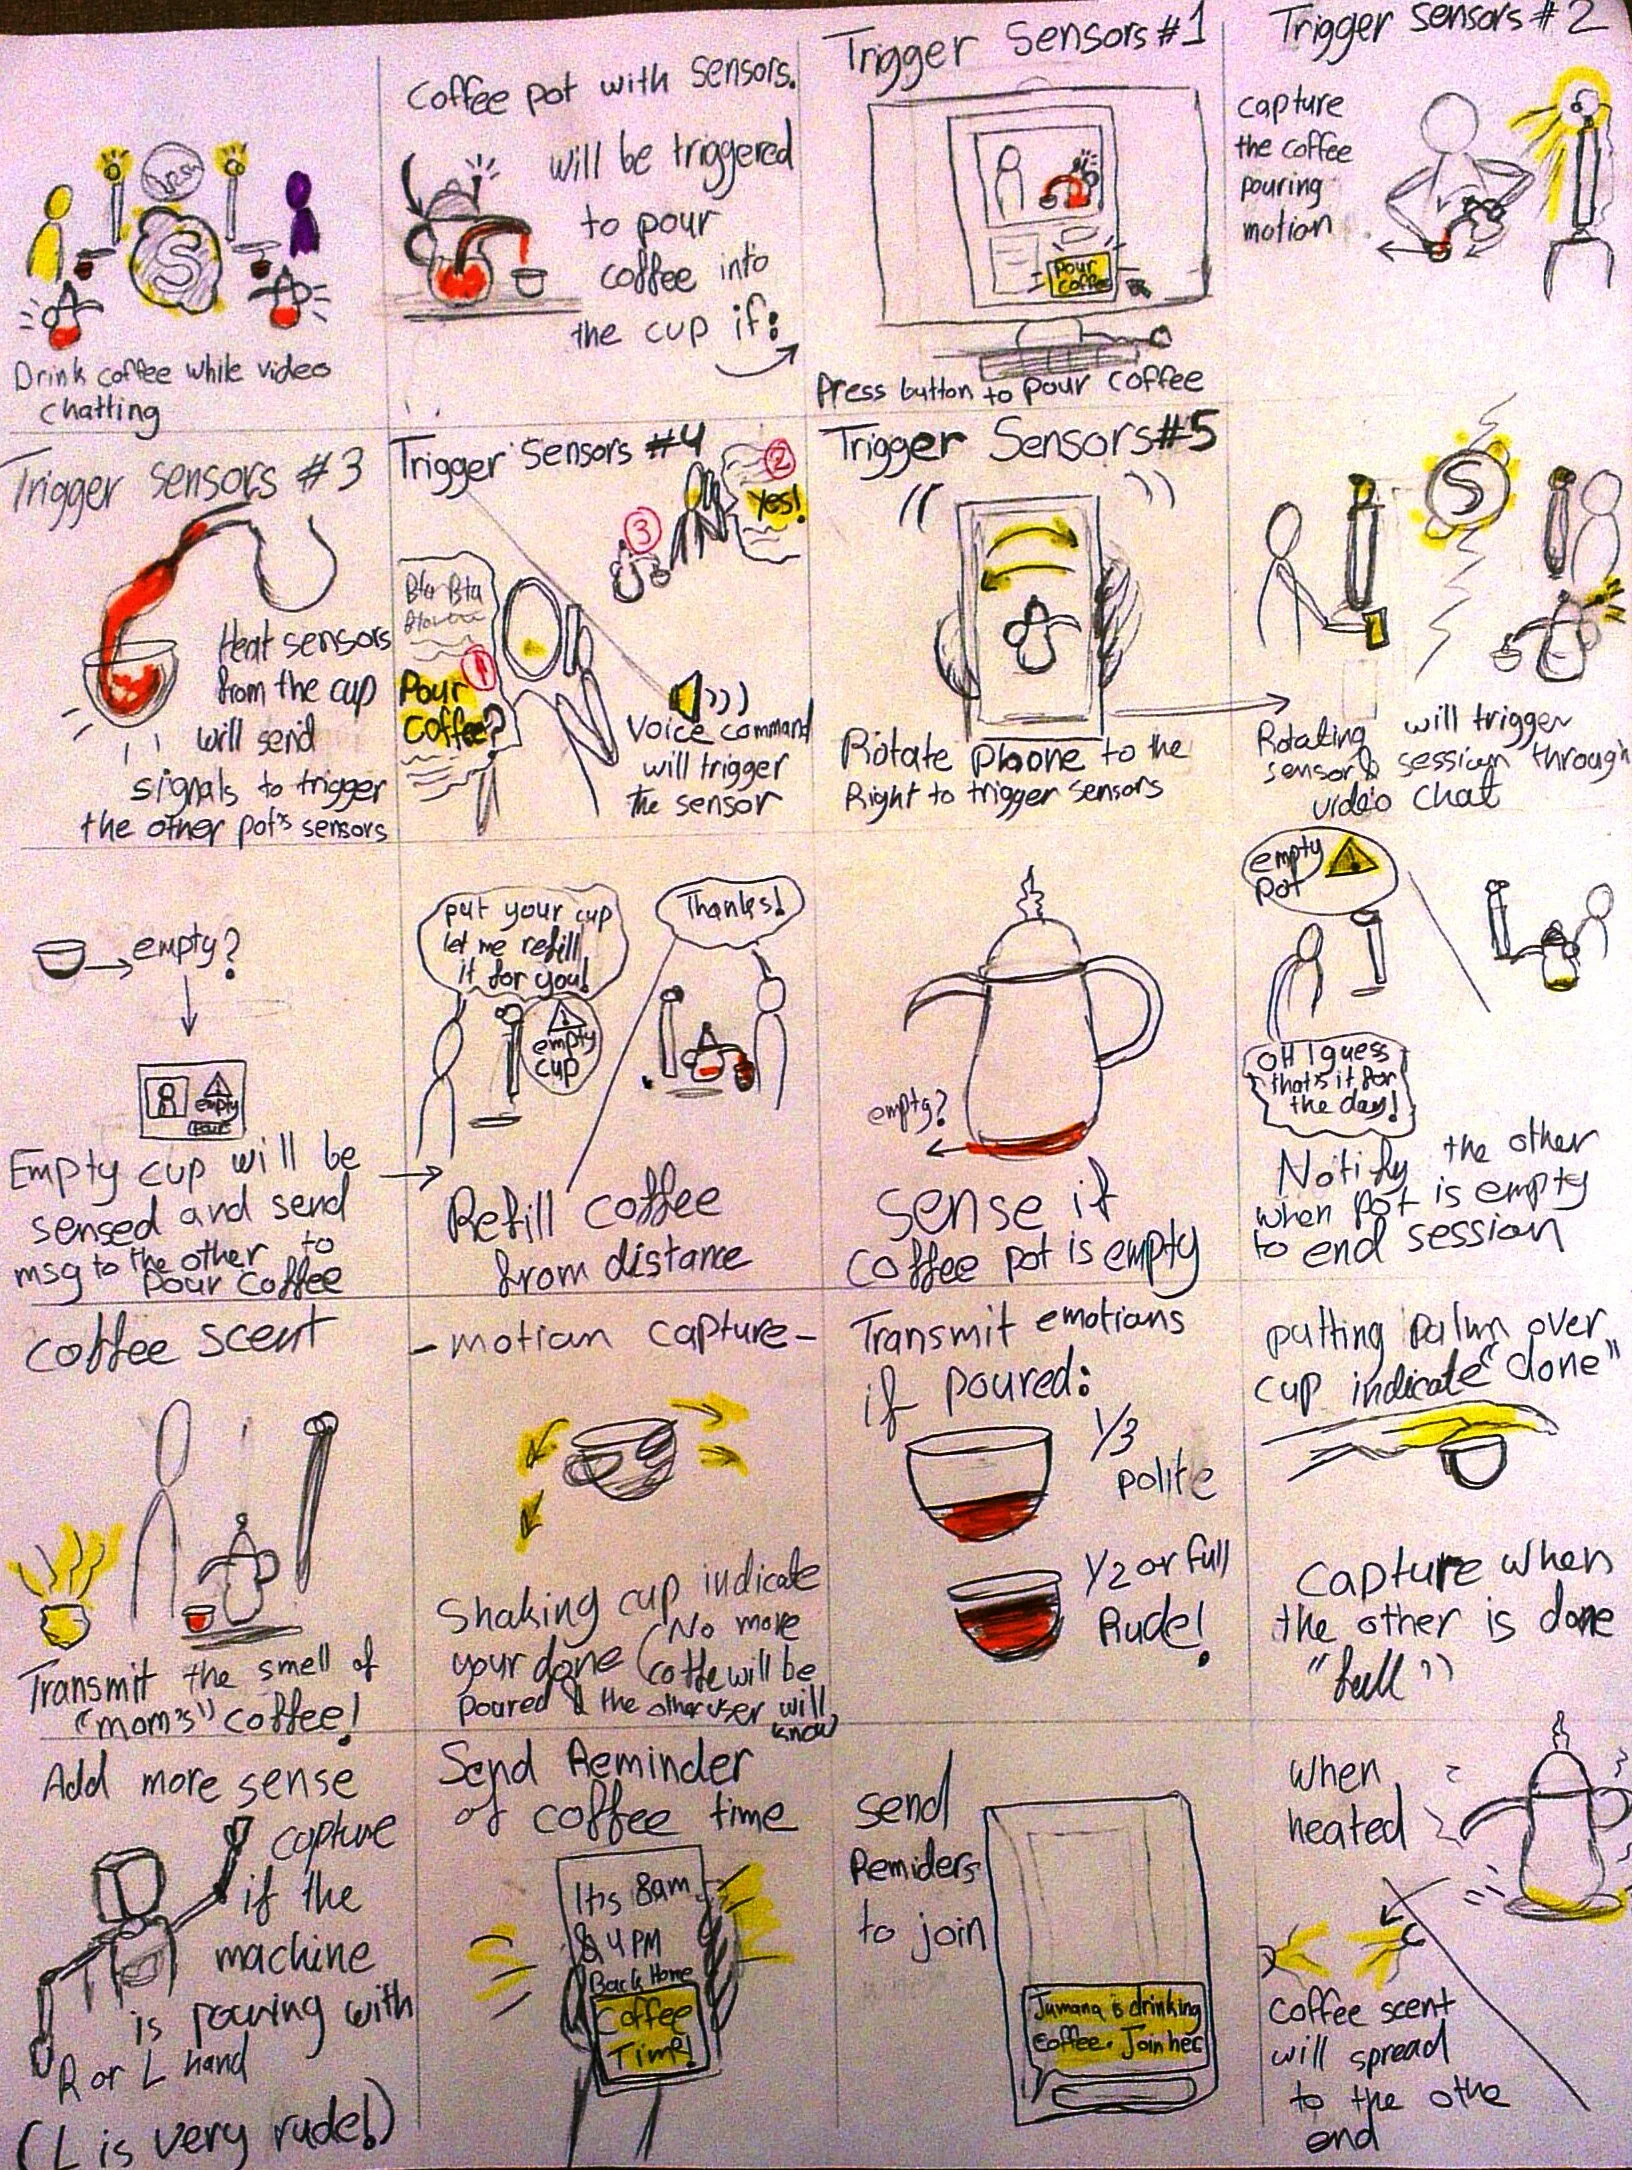 S
Drink coffee while video
chatting
Coffee pot with sensors.
will be triggered
to pour
coffee into
the cup if:
Trigger Sensors #1
Pour
coffee
Press button to pour coffee
Trigger sensors #2
capture
the coffee
pouring
motion
Trigger sensors #3
Heat sensors
from the cup
will send
signals to trigger
the other pot's sensors
Trigger Sensors #4
2
Yes!
3
Bla Bla
1
Pour
Coffee?
Voice command
will trigger
the sensor
Trigger Sensors #5
Rotate phone to the
Right to trigger sensors
S
Rotating will trigger
sensor & session through
video chat
empty?
empty
Empty cup will be
sensed and send
msg to the other to
pour coffee
put your cup
let me refill
it for you!
empty
cup
Thanks!
Refill coffee
from distance
empty?
sense if
coffee pot is empty
empty
pot
OH I guess
that's it for
the day!
Notify the other
when pot is empty
to end session
coffee scent
Transmit the smell of
"mom's" coffee!
- motian capture -
Shaking cup indicate
your done (No more
coffe will be
poured & the other user will
know
Transmit emotians
if poured:
1/3
polite
1/2 or full
Rude!
putting palm over
cup indicate "done"
capture when
the other is done
"full"
Add more sense
capture
if the
machine
is pouring with
R or L hand
(L is very rude!)
Send Reminder
of coffee time
It's 8am
& 4PM
Back Home
Coffee
Time!
send
Remiders
to join
Jumana is drinking
coffee. Join her
when
heated
coffee scent
will spread
to the othe
end